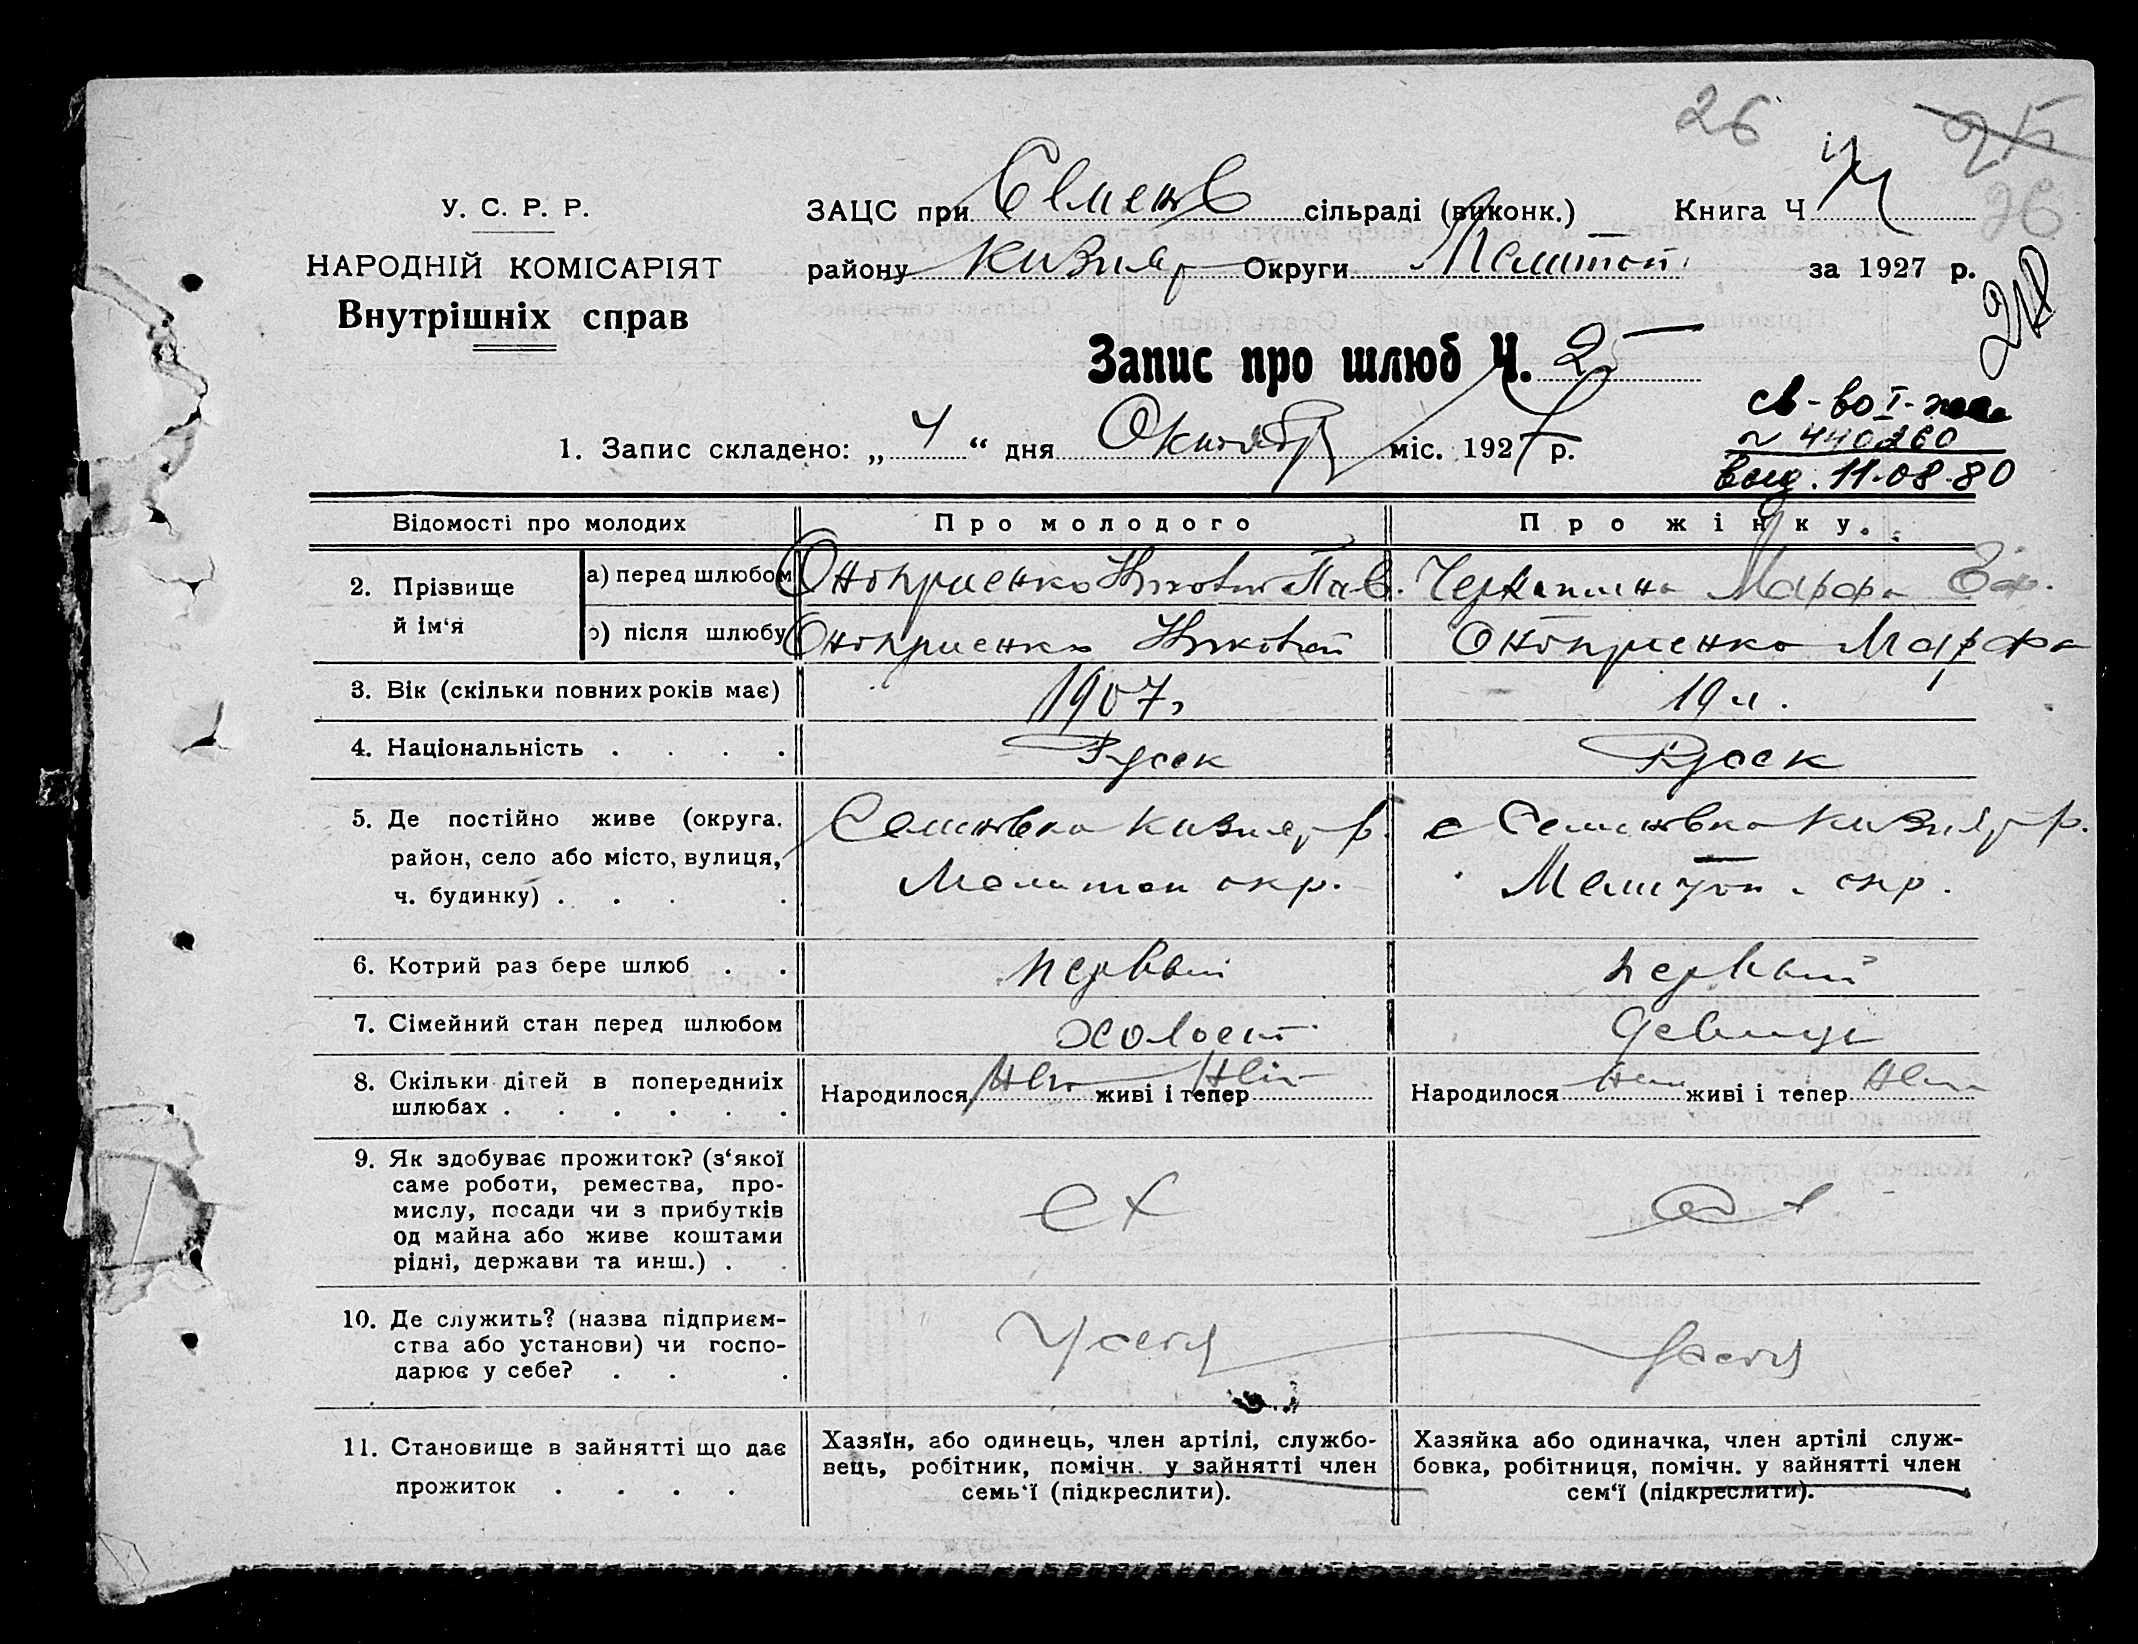 26
25
26
У. С. Р. Р.
НАРОДНІЙ КОМІСАРІЯТ
Внутрішніх справ
ЗАЦС при Семенов сільраді (виконк.) Книга Ч
району Кизияр Округи Мелитоп. за 1927 р.
Запис про шлюб Ч. 25
1. Запис складено: „ 4 “ дня Октября міс. 1927 р.
св-во I-жба
№ 440260
выд. 11.08.80
Відомості про молодих Про молодого Про жінку.
2. Прізвище й ім‘я
а) перед шлюбом Оноприенко Пав. Марфа Еф.
б) після шлюбу Оноприенко Оноприенко Марфа
3. Вік (скільки повних років має) 1907г 19 л.
4. Національність . . . . Русск Русск
5. Де постійно живе (округа. Семеновка Кизияр р. с Семеновка Кизияр р.
район, село або місто, вулиця, Мелитоп окр. Мелитоп. окр.
ч. будинку) . . . .
6. Котрий раз бере шлюб . . первый первый
7. Сімейний стан перед шлюбом холост девица
8. Скільки дітей в попередниіх
шлюбах . . . . . .
Народилося нет живі і тепер нет
Народилося нет живі і тепер нет
9. Як здобуває прожиток? (з‘якої
саме роботи, ремества, про-
мислу, посади чи з прибутків
од майна або живе коштами
рідні, держави та инш.) . . сх
10. Де служить? (назва підприєм-
ства або установи) чи госпо-
дарює у себе? . . .
у себя у себя
11. Становище в зайнятті що дає
прожиток . . . .
Хазяїн, або одинець, член артілі, службо-
вець, робітник, помічн. у зайнятті член
семь‘ї (підкреслити).
Хазяйка або одиначка, член артілі служ-
бовка, робітниця, помічн. у зайнятті член
сем‘ї (підкреслити).